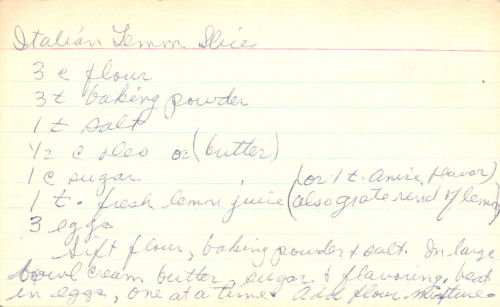 Italian Lemon Slice
3 c flour
3 t baking powder
1 t salt
1/2 c oleo or (butter)
1 c sugar (or 1 t. Anise flavor)
1 t. fresh lemon juice (also grate rind of lemon)
3 eggs
Sift flour, baking powder & salt. In large
bowl cream butter, sugar & flavoring, beat
in eggs, one at a time. Add flour mixture